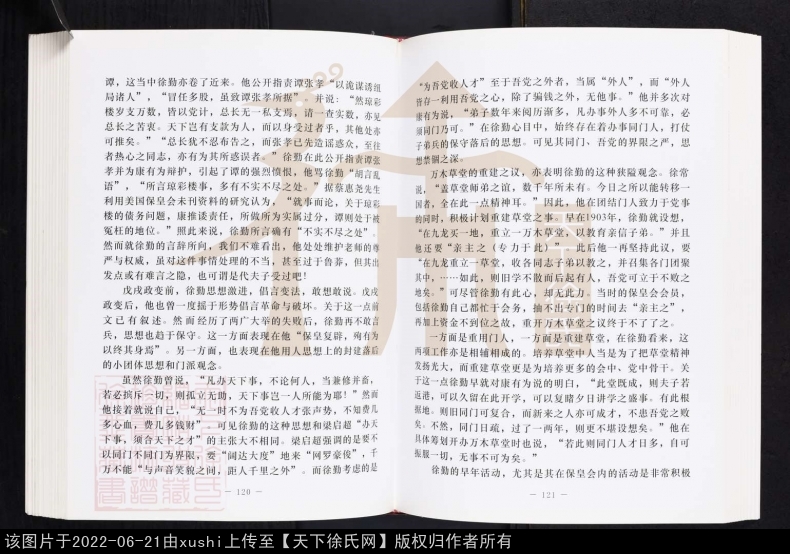 谭，这当中徐勤亦卷了近来。他公开指责谭张孝“以诡谋诱组
局诸人”，“冒任多股，虽致谭张孝所据”，并说：“然琼彩
楼岁支万数，皆以党计，总长无一私支焉，请一查实数，亦见
总长之苦衷。天下岂有支款为人，而以身受过者乎，其他处亦
可推矣。”“总长犹不忍布告之，而张孝已先造谣惑众，至往
者热心之同志，亦有为其所惑误者”。徐勤在此公开指责谭张
孝并为康有为辩护，引起了谭的强烈愤恨，他骂徐勤“胡言乱
语”，“所言琼彩楼事，多有不实不尽之处。”据蔡惠尧先生
利用美国保皇会未刊资料的研究认为，“就事而论，关于琼彩
楼的债务问题，康推谈责任，所做所为实属过分，谭则处于被
冤枉的地位。”照此来说，徐勤所言确有“不实不尽之处”。
然而就徐勤的言辞所向，我们不难看出，他处处维护老师的尊
严与权威，虽对这件事情处理的不当，甚至过于鲁莽，但其出
发点或有难言之隐，也可谓是代夫子受过吧！
戊戌政变前，徐勤思想激进，倡言变法，敢想敢说。戊戌
政变后，他也曾一度摇于形势倡言革命与破坏。关于这一点前
文已有叙述。然而经历了两广大举的失败后，徐勤再不敢言
兵，思想也趋于保守。这一方面表现在他“保皇复辟，殉有为
以终其身焉”。另一方面，也表现在他用人思想上的封建落后
的小团体思想和门派观念。
虽然徐勤曾说，“凡办天下事，不论何人，当兼修并畜，
若必摈斥一切，则孤立无助，天下事岂一人所能为耶！”然而
他接着就说自己，“无一时不为吾党收人才张声势，不知费几
多心血，费几多钱财”。可见徐勤的这种思想和梁启超“办天
下事，须合天下之才”的主张大不相同。梁启超强调的是要不
以同门不同门为界限，要“阔达大度”地来“网罗豪俊”，千
万不能“与声音笑貌之间，距人千里之外”。而徐勤考虑的是
— 120 —
“为吾党收人才”至于吾党之外者，当属“外人”，而“外人
皆存一利用吾党之心，除了骗钱之外，无他事。”他并多次对
康有为说，“弟子数年来阅历渐多，凡办事外人多不可靠，必
须同门乃可。”在徐勤心目中，始终存在着办事同门人，打仗
子弟兵的保守落后的思想。可见其同门、吾党的界限之严，思
想禁锢之深。
万木草堂的重建之议，亦表明徐勤的这种狭隘观念。徐常
说，“盖草堂师弟之谊，数千年所未有。今日之所以能转移一
国者，全在此一点精神耳。”因此，他在团结门人致力于党事
的同时，积极计划重建草堂之事。早在1903年，徐勤就设想，
“在九龙买一地，重立一万木草堂，以教育亲信子弟。”并且
他还要“亲主之（专力于此）”。此后他一再坚持此议，要
“在九龙重立一草堂，收各同志子弟以教之，并召集各门团聚
其中，……如此，则旧学不散而后起有人，吾党可立于不败之
地矣。”可尽管徐勤有此心，却无此力。当时的保皇会会员，
包括徐勤自己都忙于会务，抽不出专门的时间去“亲主之”，
再加上资金不到位之故，重开万木草堂之议终于不了了之。
一方面是重用门人，一方面是重建草堂，在徐勤看来，这
两项工作亦是相辅相成的。培养草堂中人当是为了把草堂精神
发扬光大，而重建草堂更是为培养更多的会中、党中骨干。关
于这一点徐勤早就对康有为说的明白，“此堂既成，则夫子若
返港，可以久留在此开学，可以复睹夕日讲学之盛事。有此根
据地，则旧同门可复合，而新来之人亦可成才，不患吾党之败
矣。不然，同门日疏，过了一两年，则更不堪设想矣。”他在
具体筹划开办万木草堂时也说，“若此则同门人才日多，自可
振服一切，无事不可为矣。”
徐勤的早年活动，尤其是其在保皇会内的活动是非常积极
— 121 —
该图片于2022-06-21由xushi上传至【天下徐氏网】版权归作者所有